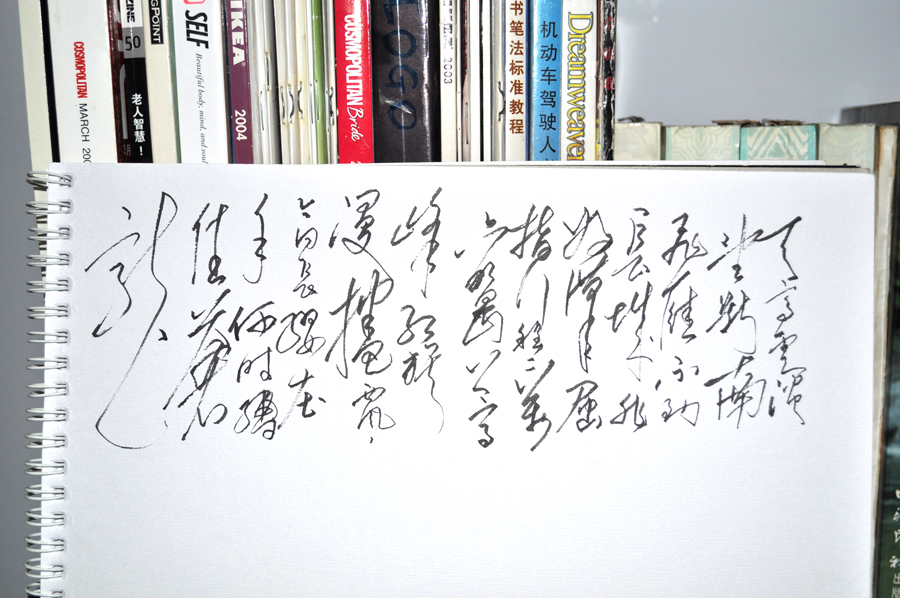 COSMOPOLITAN MARCH
50
老人智慧!
SELF Beautiful body, mind, and soul
IKEA 2004
COSMOPOLITAN Bride
LOGO
2003
书笔法标准教程
机动车驾驶人
Dreamweaver
天高雲淡
望斷南
飛雁不到
長城非
好漢屈
指行程二萬
六盤山上高
峰紅旗
漫捲西風
今日長纓在
手何時縛
住蒼
龍